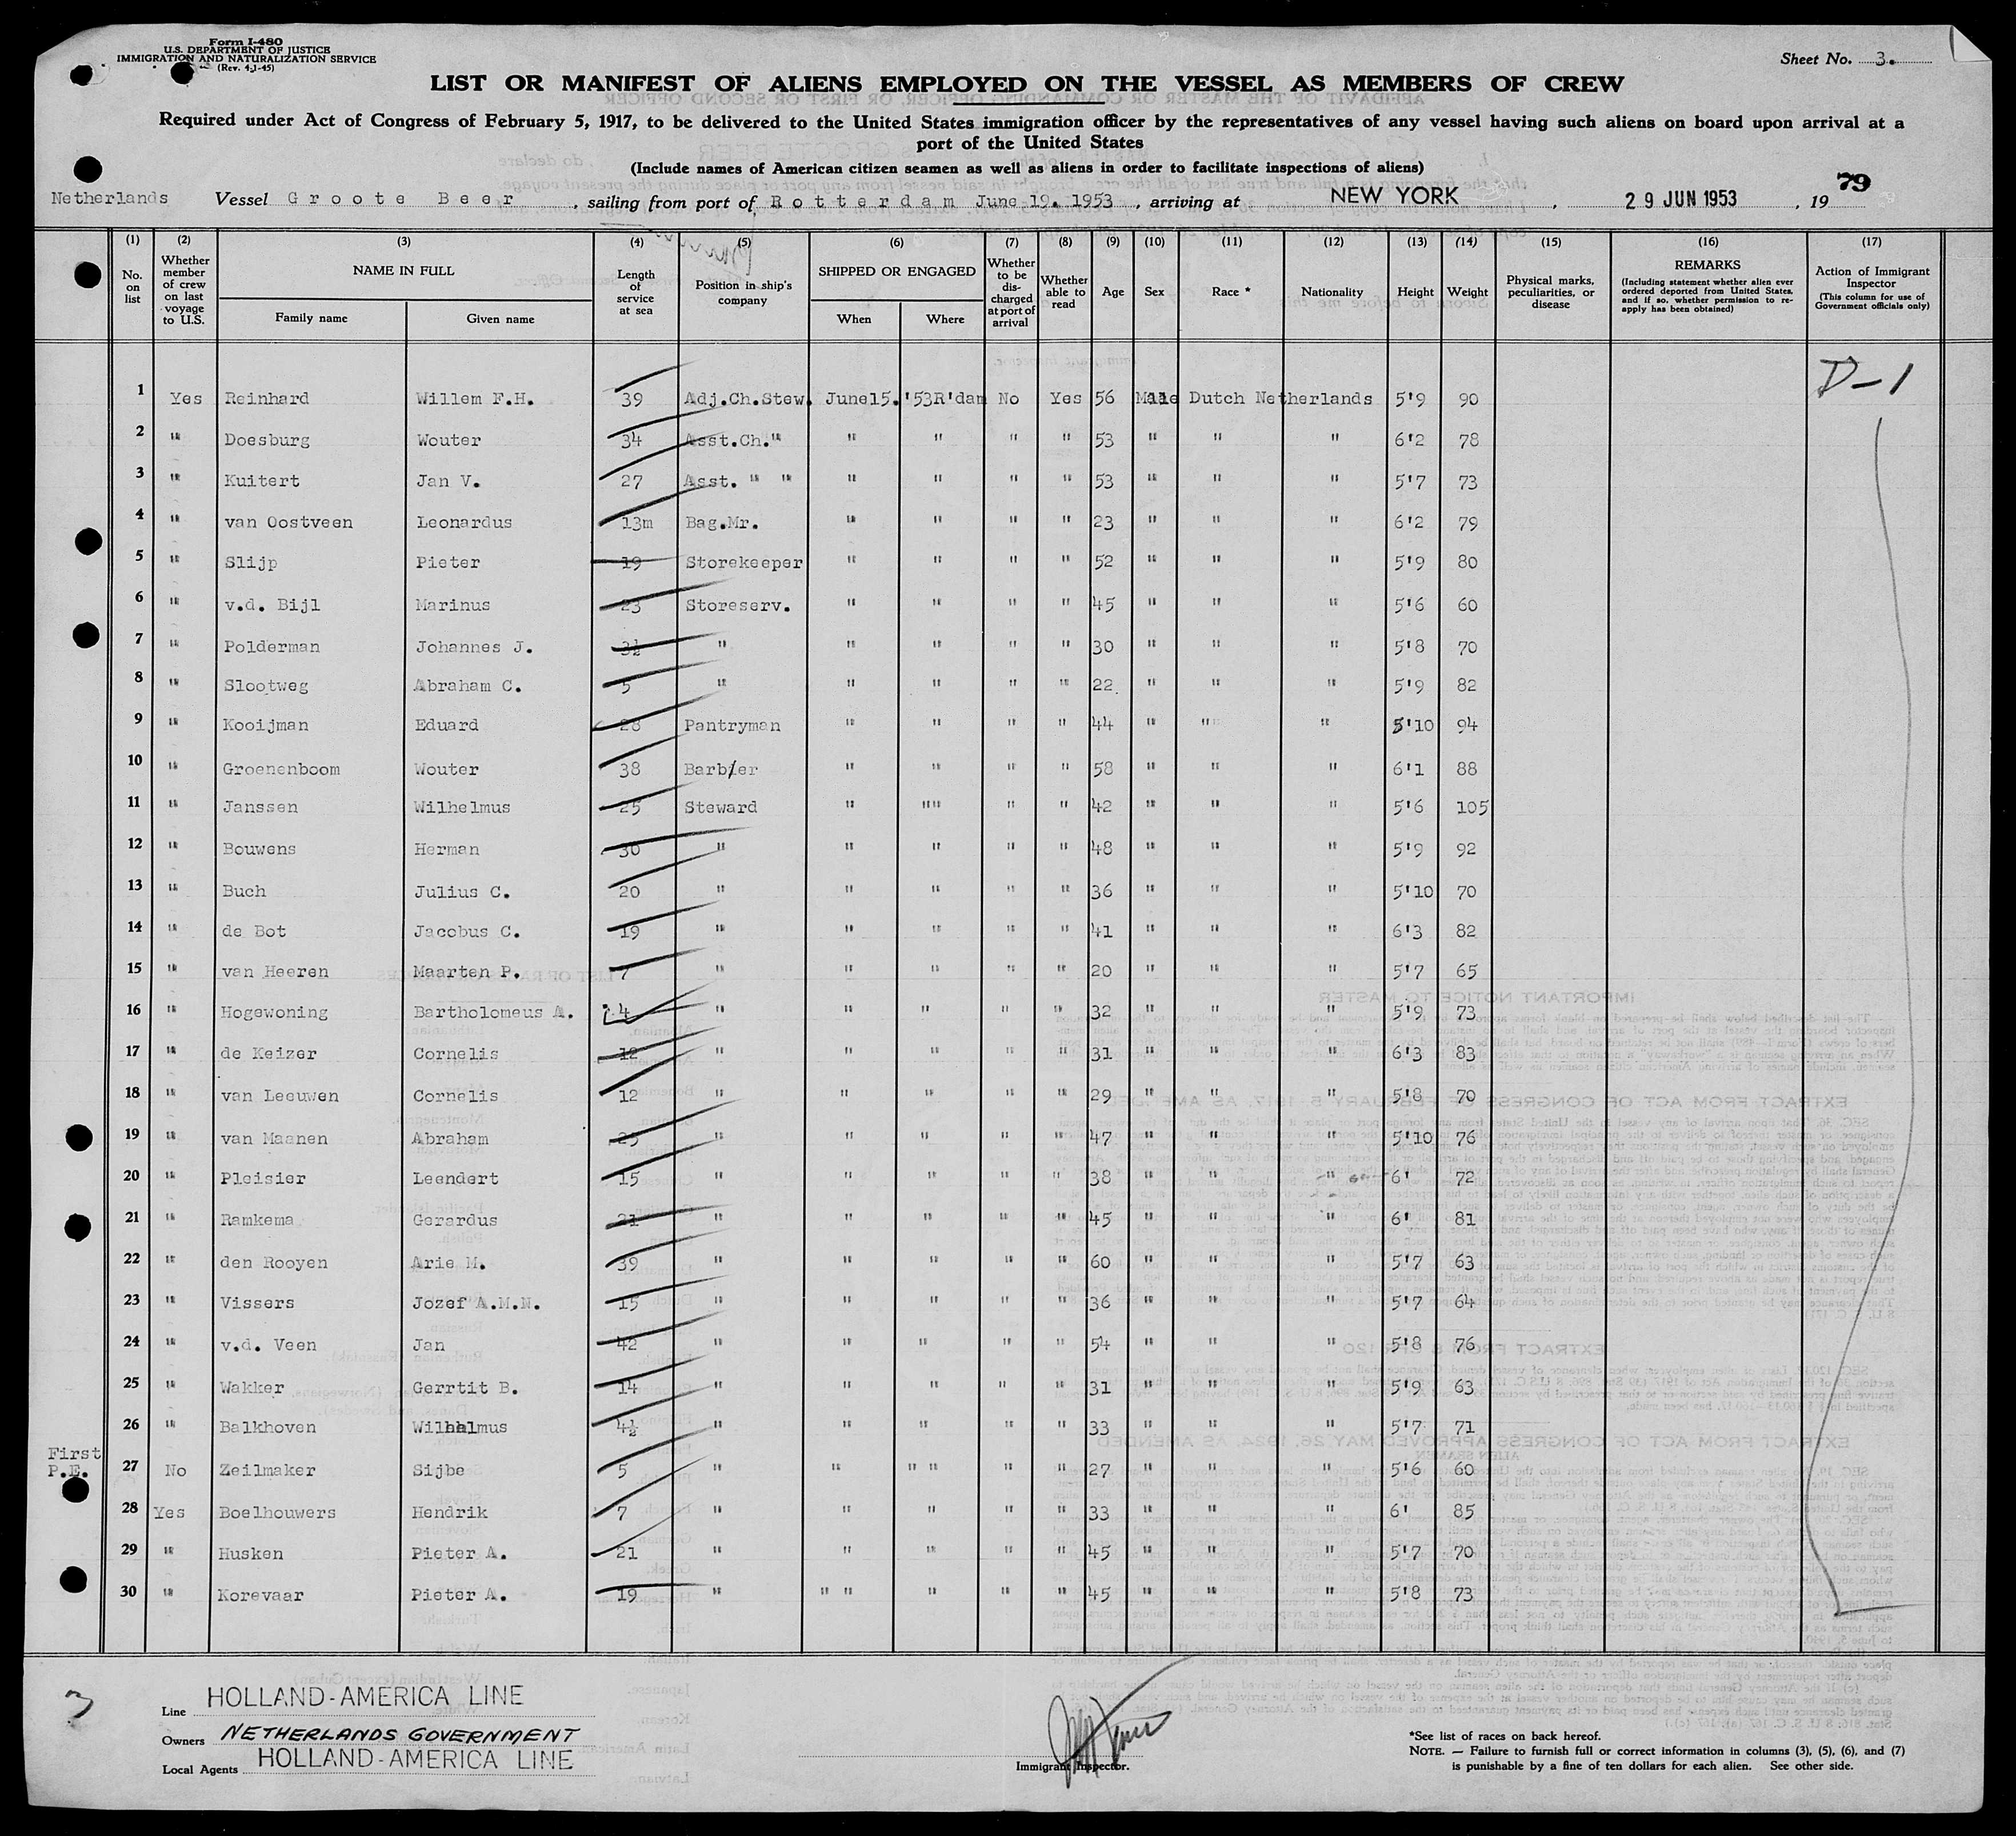 Form I-480
U.S. DEPARTMENT OF JUSTICE
IMMIGRATION AND NATURALIZATION SERVICE
(Rev. 4-1-45)
Sheet No. 3.
LIST OR MANIFEST OF ALIENS EMPLOYED ON THE VESSEL AS MEMBERS OF CREW
Required under Act of Congress of February 5, 1917, to be delivered to the United States immigration officer by the representatives of any vessel having such aliens on board upon arrival at a
port of the United States
(Include names of American citizen seamen as well as aliens in order to facilitate inspections of aliens)
79
Netherlands Vessel Groote Beer, sailing from port of Rotterdam June 19. 1953, arriving at NEW YORK, 29 JUN 1953, 19
(1) No. on list (2) Whether member of crew on last voyage to U.S. (3) NAME IN FULL Family name Given name (4) Length of service at sea (5) Position in ship's company (6) SHIPPED OR ENGAGED When Where (7) Whether to be discharged at port of arrival (8) Whether able to read (9) Age (10) Sex (11) Race * (12) Nationality (13) Height (14) Weight (15) Physical marks, peculiarities, or disease (16) REMARKS (Including statement whether alien ever ordered deported from United States, and if so, whether permission to re-apply has been obtained) (17) Action of Immigrant Inspector (This column for use of Government officials only)
D-1
1 Yes Reinhard Willem F.H. 39 Adj.Ch.Stew. June15.'53 R'dam No Yes 56 Male Dutch Netherlands 5'9 90
2 " Doesburg Wouter 34 Asst.Ch." " " " " 53 " " " 6'2 78
3 " Kuitert Jan V. 27 Asst. " " " " " " 53 " " " 5'7 73
4 " van Oostveen Leonardus 13m Bag.Mr. " " " " 23 " " " 6'2 79
5 " Slijp Pieter 19 Storekeeper " " " " 52 " " " 5'9 80
6 " v.d. Bijl Marinus 23 Storeserv. " " " " 45 " " " 5'6 60
7 " Polderman Johannes J. 3½ " " " " " 30 " " " 5'8 70
8 " Slootweg Abraham C. 5 " " " " " 22 " " " 5'9 82
9 " Kooijman Eduard 28 Pantryman " " " " 44 " " " 5'10 94
10 " Groenenboom Wouter 38 Barb/er " " " " 58 " " " 6'1 88
11 " Janssen Wilhelmus 25 Steward " "" " " 42 " " " 5'6 105
12 " Bouwens Herman 30 " " " " " 48 " " " 5'9 92
13 " Buch Julius C. 20 " " " " " 36 " " " 5'10 70
14 " de Bot Jacobus C. 19 " " " " " 41 " " " 6'3 82
15 " van Heeren Maarten P. 7 " " " " " 20 " " " 5'7 65
16 " Hogewoning Bartholomeus A. 4 " " " " " 32 " " " 5'9 73
17 " de Keizer Cornelis 12 " " " " " 31 " " " 6'3 83
18 " van Leeuwen Cornelis 12 " " " " " 29 " " " 5'8 70
19 " van Maanen Abraham 25 " " " " " 47 " " " 5'10 76
20 " Pleisier Leendert 15 " " " " " 38 " " " 6' 72
21 " Ramkema Gerardus 21 " " " " " 45 " " " 6' 81
22 " den Rooyen Arie M. 39 " " " " " 60 " " " 5'7 63
23 " Vissers Jozef A.M.N. 15 " " " " " 36 " " " 5'7 64
24 " v.d. Veen Jan 42 " " " " " 54 " " " 5'8 76
25 " Wakker Gerrtit B. 14 " " " " " 31 " " " 5'9 63
26 " Balkhoven Wilhelmus 4½ " " " " " 33 " " " 5'7 71
First
P.E. 27 No Zeilmaker Sijbe 5 " " " " " " 27 " " " 5'6 60
28 Yes Boelhouwers Hendrik 7 " " " " " 33 " " " 6' 85
29 " Husken Pieter A. 21 " " " " " 45 " " " 5'7 70
30 " Korevaar Pieter A. 19 " " " " " " 45 " " " 5'8 73
3
Line HOLLAND-AMERICA LINE
Owners NETHERLANDS GOVERNMENT
Local Agents HOLLAND-AMERICA LINE
Immigrant Inspector.
*See list of races on back hereof.
NOTE. — Failure to furnish full or correct information in columns (3), (5), (6), and (7)
is punishable by a fine of ten dollars for each alien. See other side.